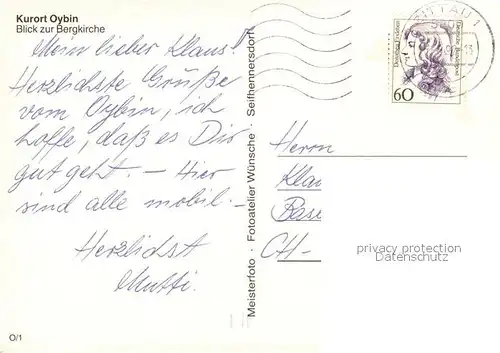 Kurort Oybin
Blick zur Bergkirche
Mein lieber Klaus!
Herzlichste Grüße
vom Oybin, ich
hoffe, daß es Dir
gut geht. – Hier
sind alle mobil. –
Herzlichst
Mutti.
O/1
Meisterfoto - Fotoatelier Wünsche - Seifhennersdorf
ZITTAU 1
Deutsche Bundespost
60
Herrn
Klau
Base
CH-
privacy protection
Datenschutz